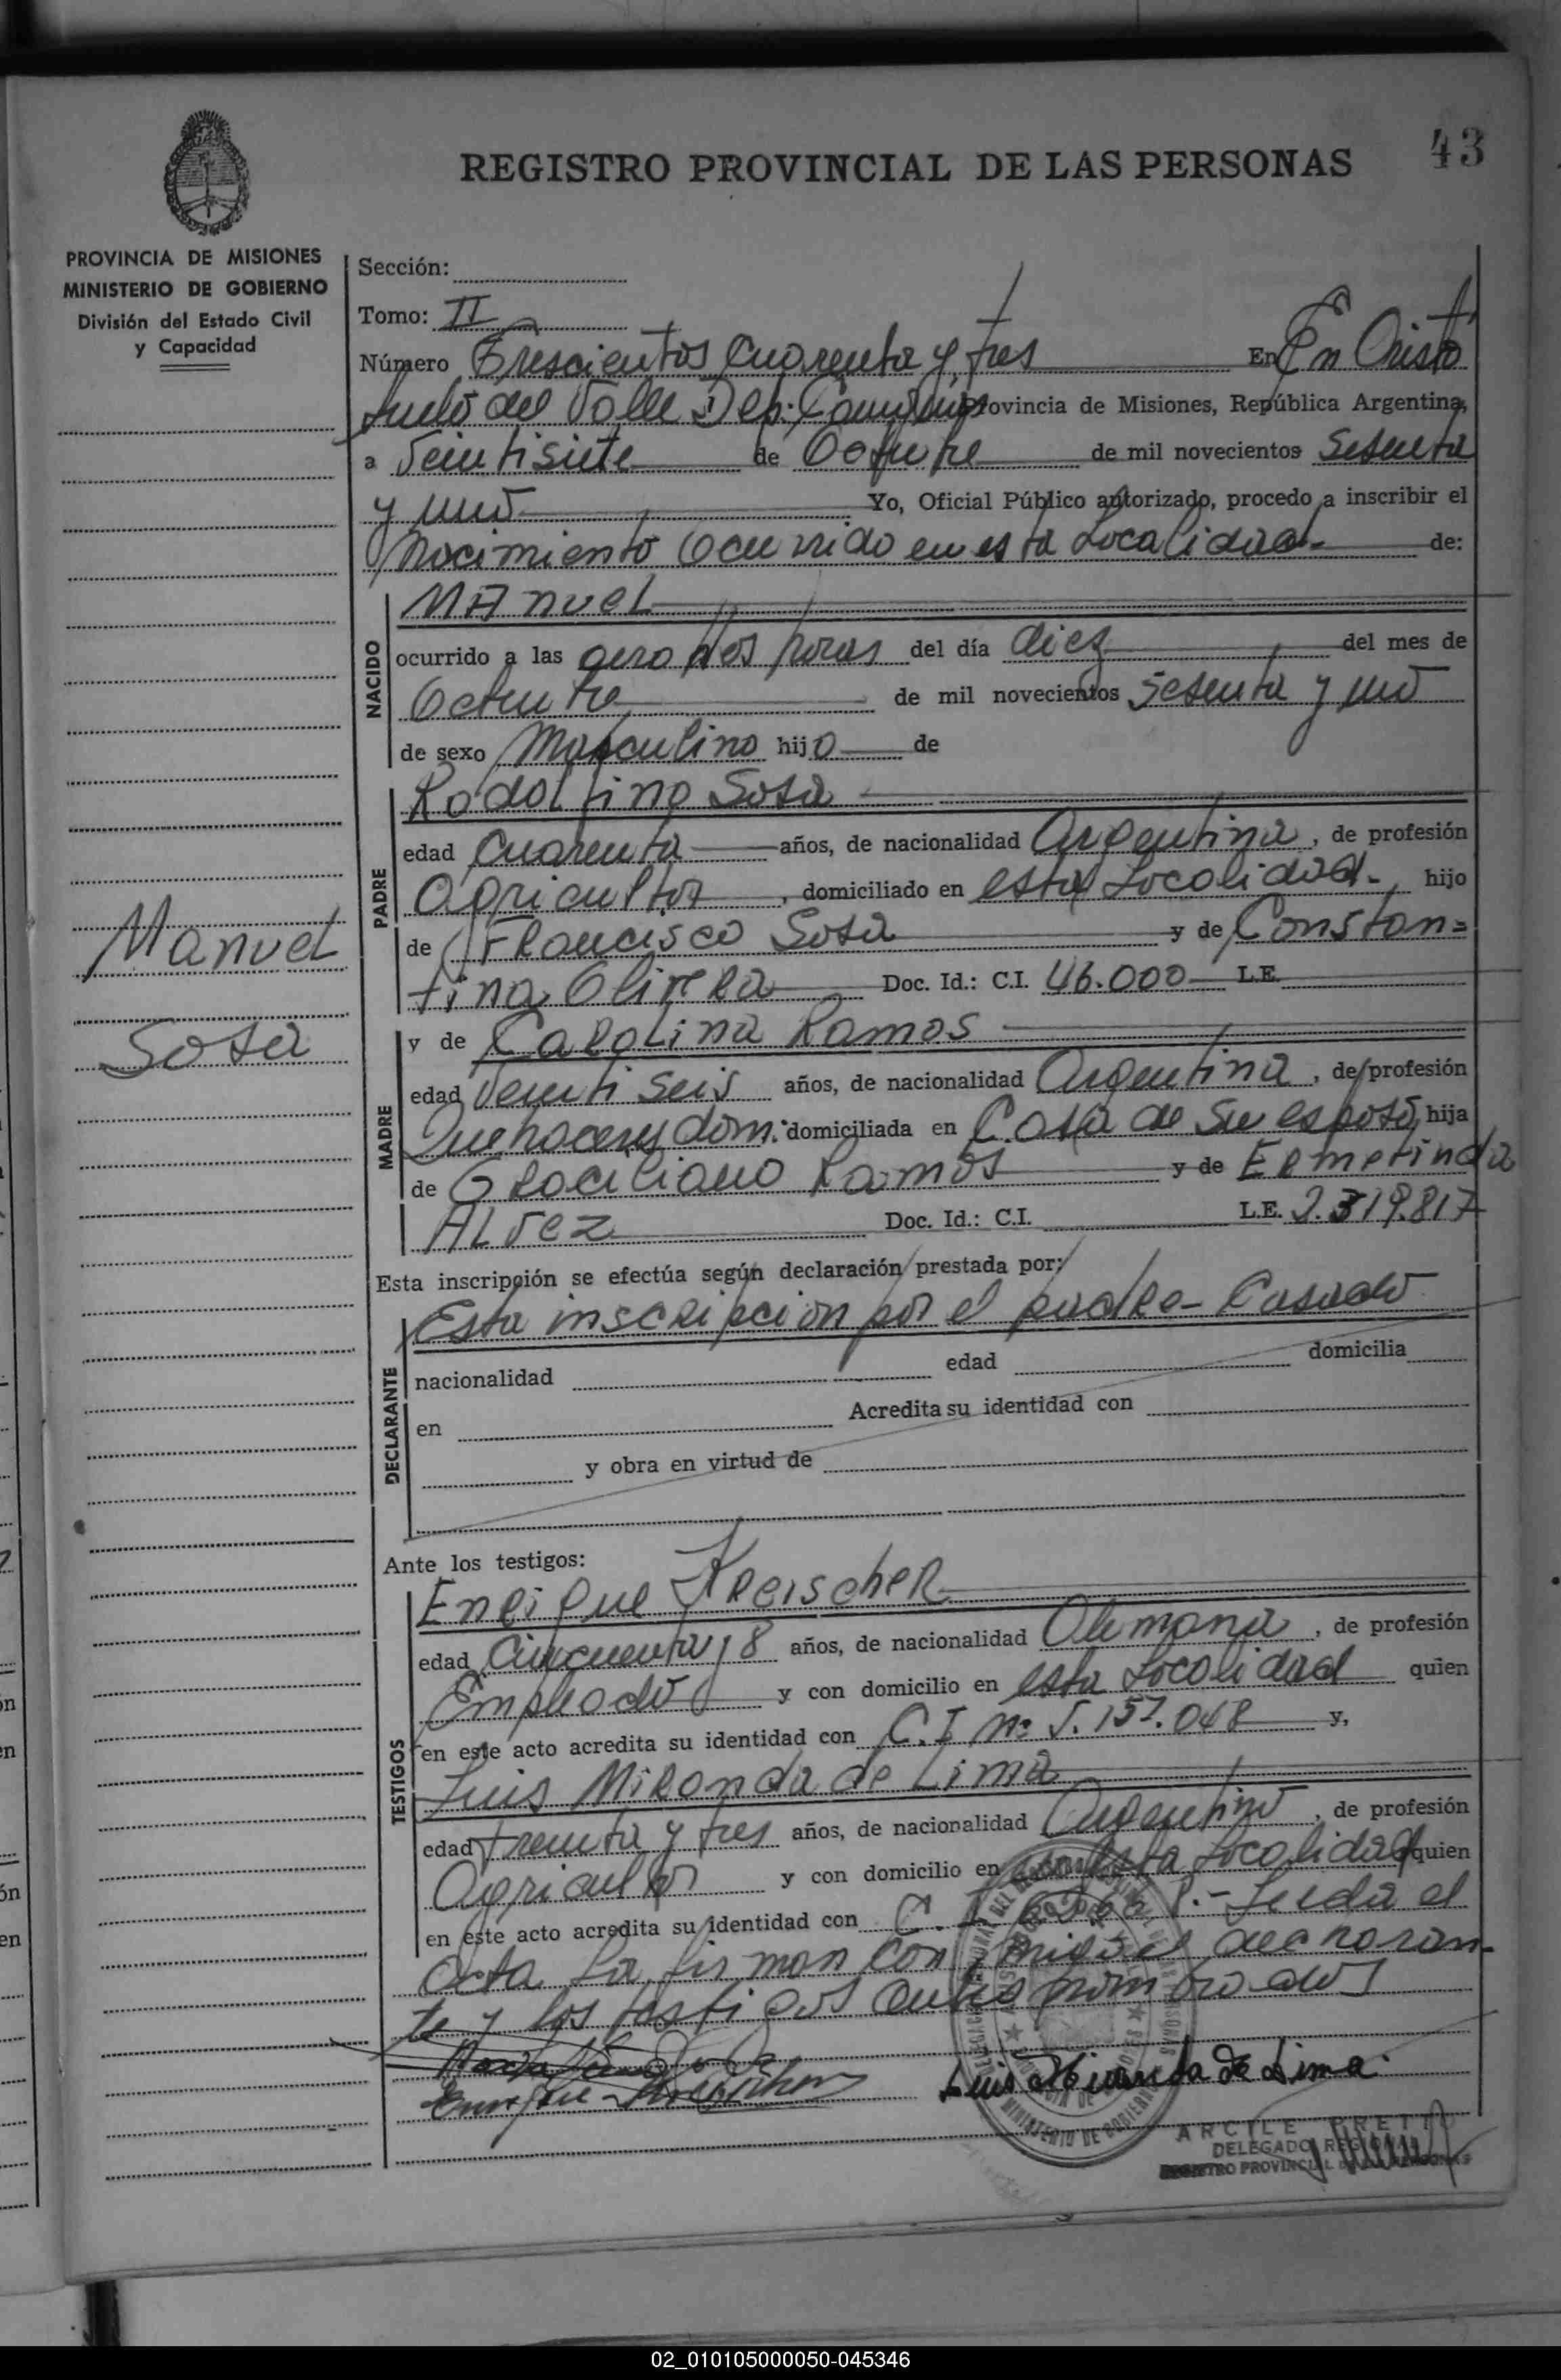 43
REGISTRO PROVINCIAL DE LAS PERSONAS
PROVINCIA DE MISIONES
MINISTERIO DE GOBIERNO
División del Estado Civil
y Capacidad
Manuel
Sosa
Sección:
Tomo: II
Número Trescientos Cuarenta y tres En En Cristo
del Valle Dep: Provincia de Misiones, República Argentina,
a Veintisiete de Octubre de mil novecientos Sesenta
y uno Yo, Oficial Público autorizado, procedo a inscribir el
Nacimiento Ocurrido en esta Localidad.- de:
NACIDO
MAnueL
ocurrido a las cero dos horas del día diez del mes de
Octubre de mil novecientos Sesenta y uno
de sexo Masculino hijo de
PADRE
Rodolfino Sosa
edad Cuarenta años, de nacionalidad Argentina, de profesión
Agricultor, domiciliado en esta Localidad.- hijo
de Francisco Sosa y de Constan=
tina Olivera Doc. Id.: C.I. 46.000 L.E.
MADRE
y de Carolina Ramos
edad Veinti Seis años, de nacionalidad Argentina, de profesión
Quehaceres dom. domiciliada en Casa de su esposo, hija
de Graciliano Ramos y de Ermelinda
ALvez Doc. Id.: C.I. L.E. 2.319.817
Esta inscripción se efectúa según declaración prestada por:
DECLARANTE
Esta inscripcion por el padre - Casado
nacionalidad edad domicilia
en Acredita su identidad con
y obra en virtud de
Ante los testigos:
TESTIGOS
Enrique Kreischer
edad Cincuenta y 8 años, de nacionalidad Alemana, de profesión
Empleado y con domicilio en esta Localidad quien
en este acto acredita su identidad con C.I nº 157.048 y,
Luis Miranda de Lima
edad treinta y tres años, de nacionalidad Argentino, de profesión
Agricultor y con domicilio en esta Localidad quien
en este acto acredita su identidad con C.I .- Leida el
Acta La firman con migo el declaran-
te y los testigos antes nombrados
Enrique Kreischer
Luis Miranda de Lima
ARCILE PRETTO
DELEGADO REGIONAL
REGISTRO PROVINCIAL DE LAS PERSONAS
MINISTERIO DE GOBIERNO
02_010105000050-045346